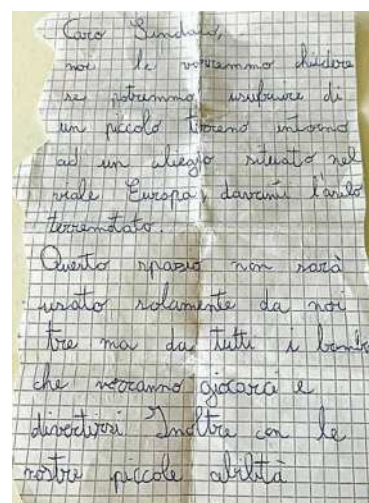 Caro Sindaco,
noi le vorremmo chiedere
se potremmo usufruire di
un piccolo terreno intorno
ad un ciliegio situato nel
viale Europa, davanti l'asilo
terremotato.
Questo spazio non sarà
usato solamente da noi
tre ma da tutti i
che vorranno giocarci e
divertirsi Inoltre con le
nostre piccole abilità